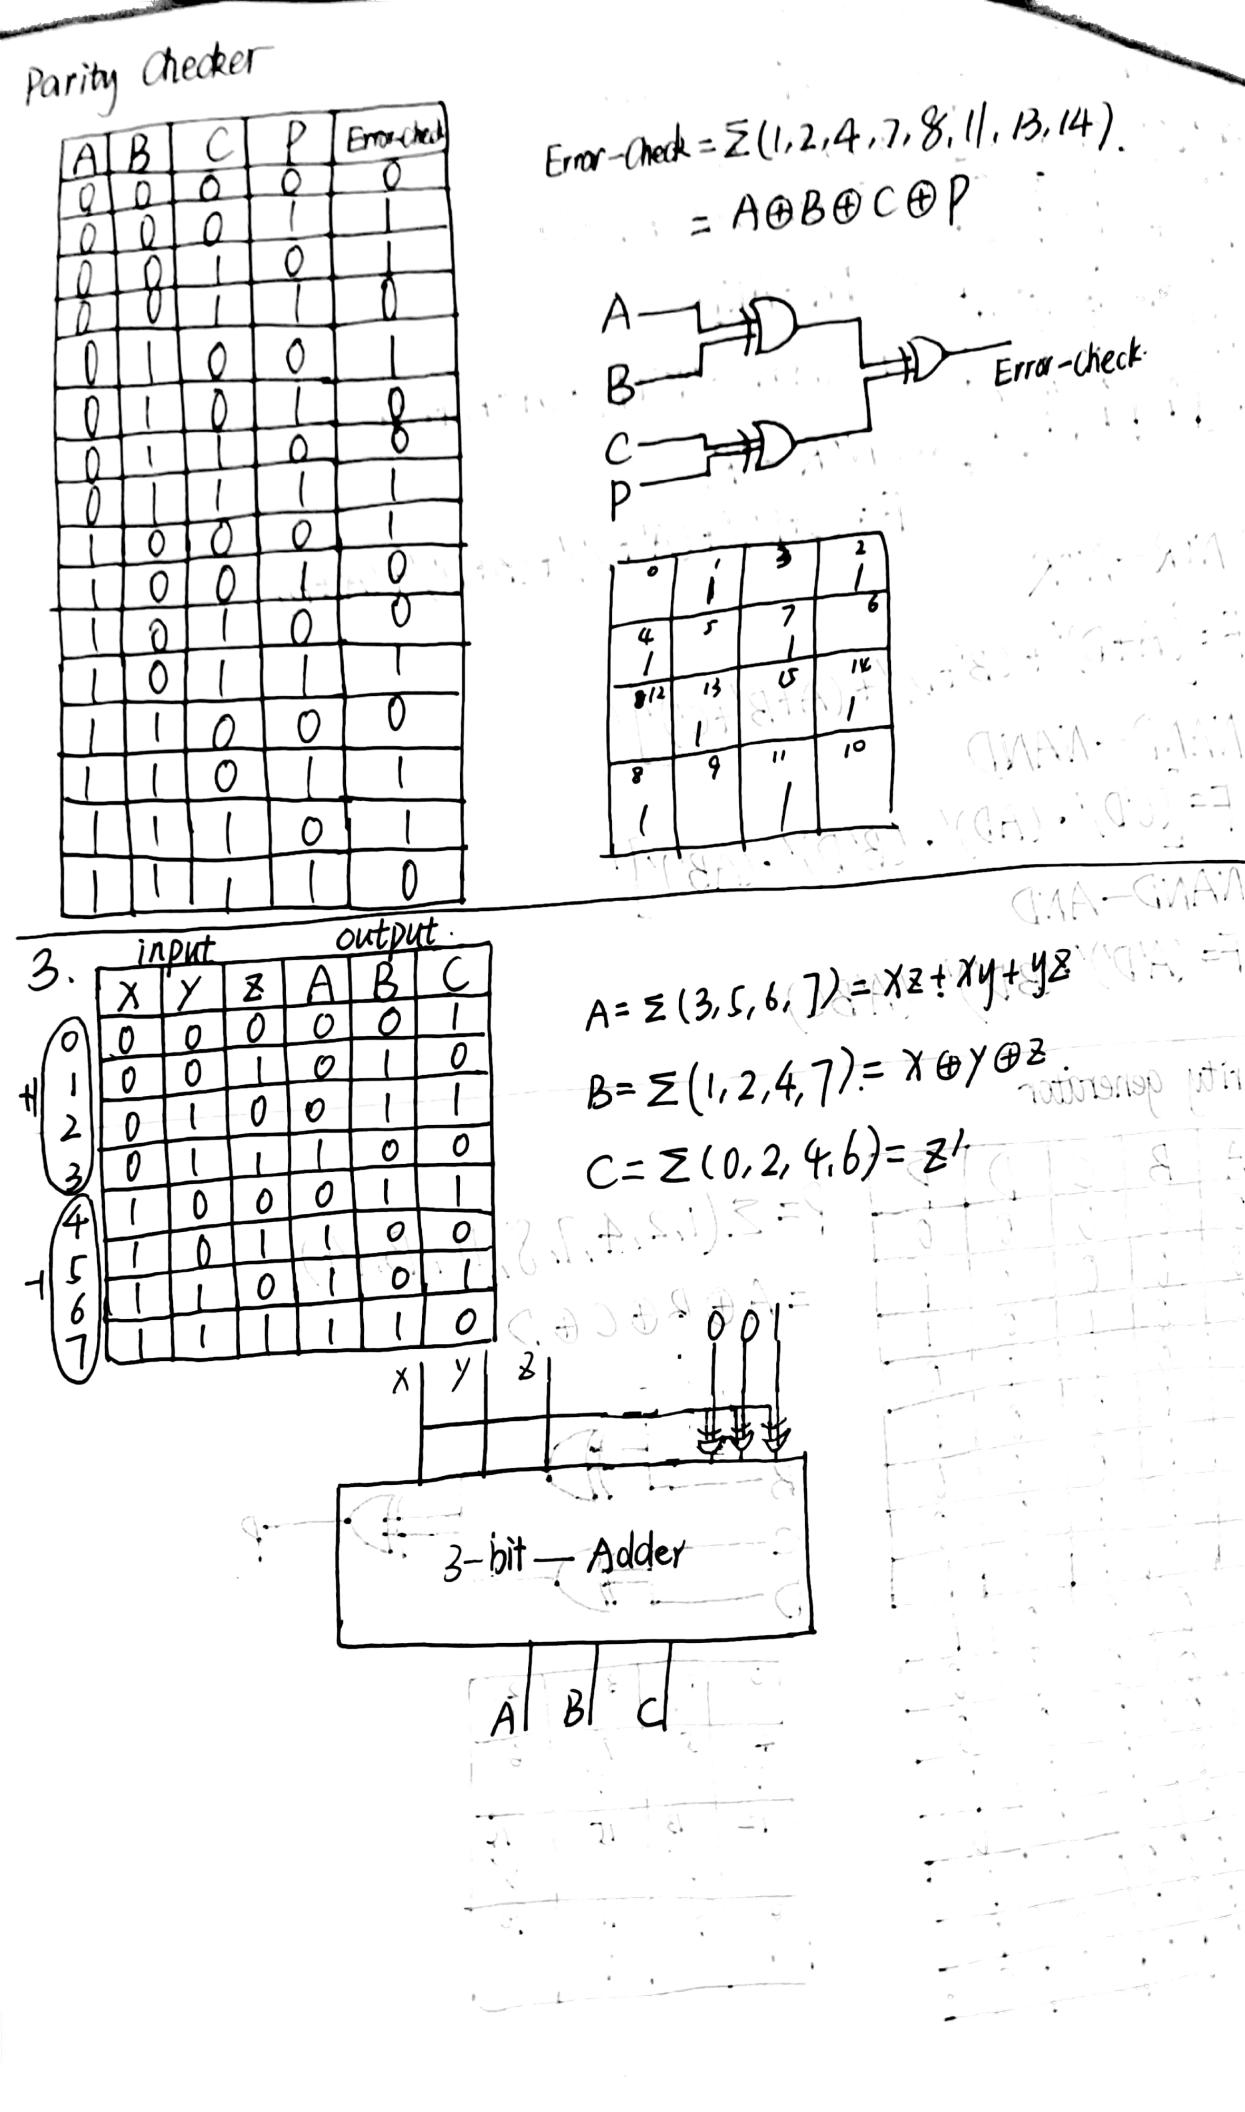 Parity Checker
A B C P Error-Check
0 0 0 0 0
0 0 0 1 1
0 0 1 0 1
0 0 1 1 0
0 1 0 0 1
0 1 0 1 0
0 1 1 0 0
0 1 1 1 1
1 0 0 0 1
1 0 0 1 0
1 0 1 0 0
1 0 1 1 1
1 1 0 0 0
1 1 0 1 1
1 1 1 0 1
1 1 1 1 0
Error-Check = Σ(1,2,4,7,8,11,13,14).
= A⊕B⊕C⊕P
A
B
C
P
Error-check.
0 1 3 2
1 1
4 5 7 6
1 1
12 13 15 14
1 1
8 9 11 10
1 1
3.
input output.
X Y Z A B C
0 0 0 0 0 0 1
1 0 0 1 0 1 0
2 0 1 0 0 1 1
3 0 1 1 1 0 0
4 1 0 0 0 1 1
5 1 0 1 1 0 0
6 1 1 0 1 0 1
7 1 1 1 1 1 0
+1
-1
A=Σ(3,5,6,7)=xz+xy+yz
B=Σ(1,2,4,7)=x⊕y⊕z
C=Σ(0,2,4,6)=z'
X Y Z 0 0 1
3-bit — Adder
A B C